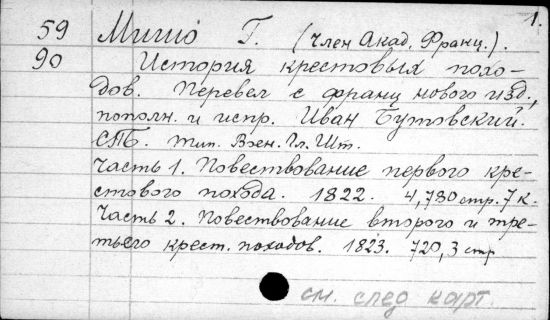 1.
59 Мишо Г. (член Акад. Франц.).
90 История крестовых похо-
дов. Перевел с франц нового изд.,
пополн. и испр. Иван Бутовский.
СПБ. Тип. Воен. Гл. Шт.
Часть 1. Повествование первого кре-
стового похода. 1822. 4,780 стр. 7 к.
Часть 2. Повествование второго и тре-
тьего крест. походов. 1823. 720, 3 стр
см. след карт.